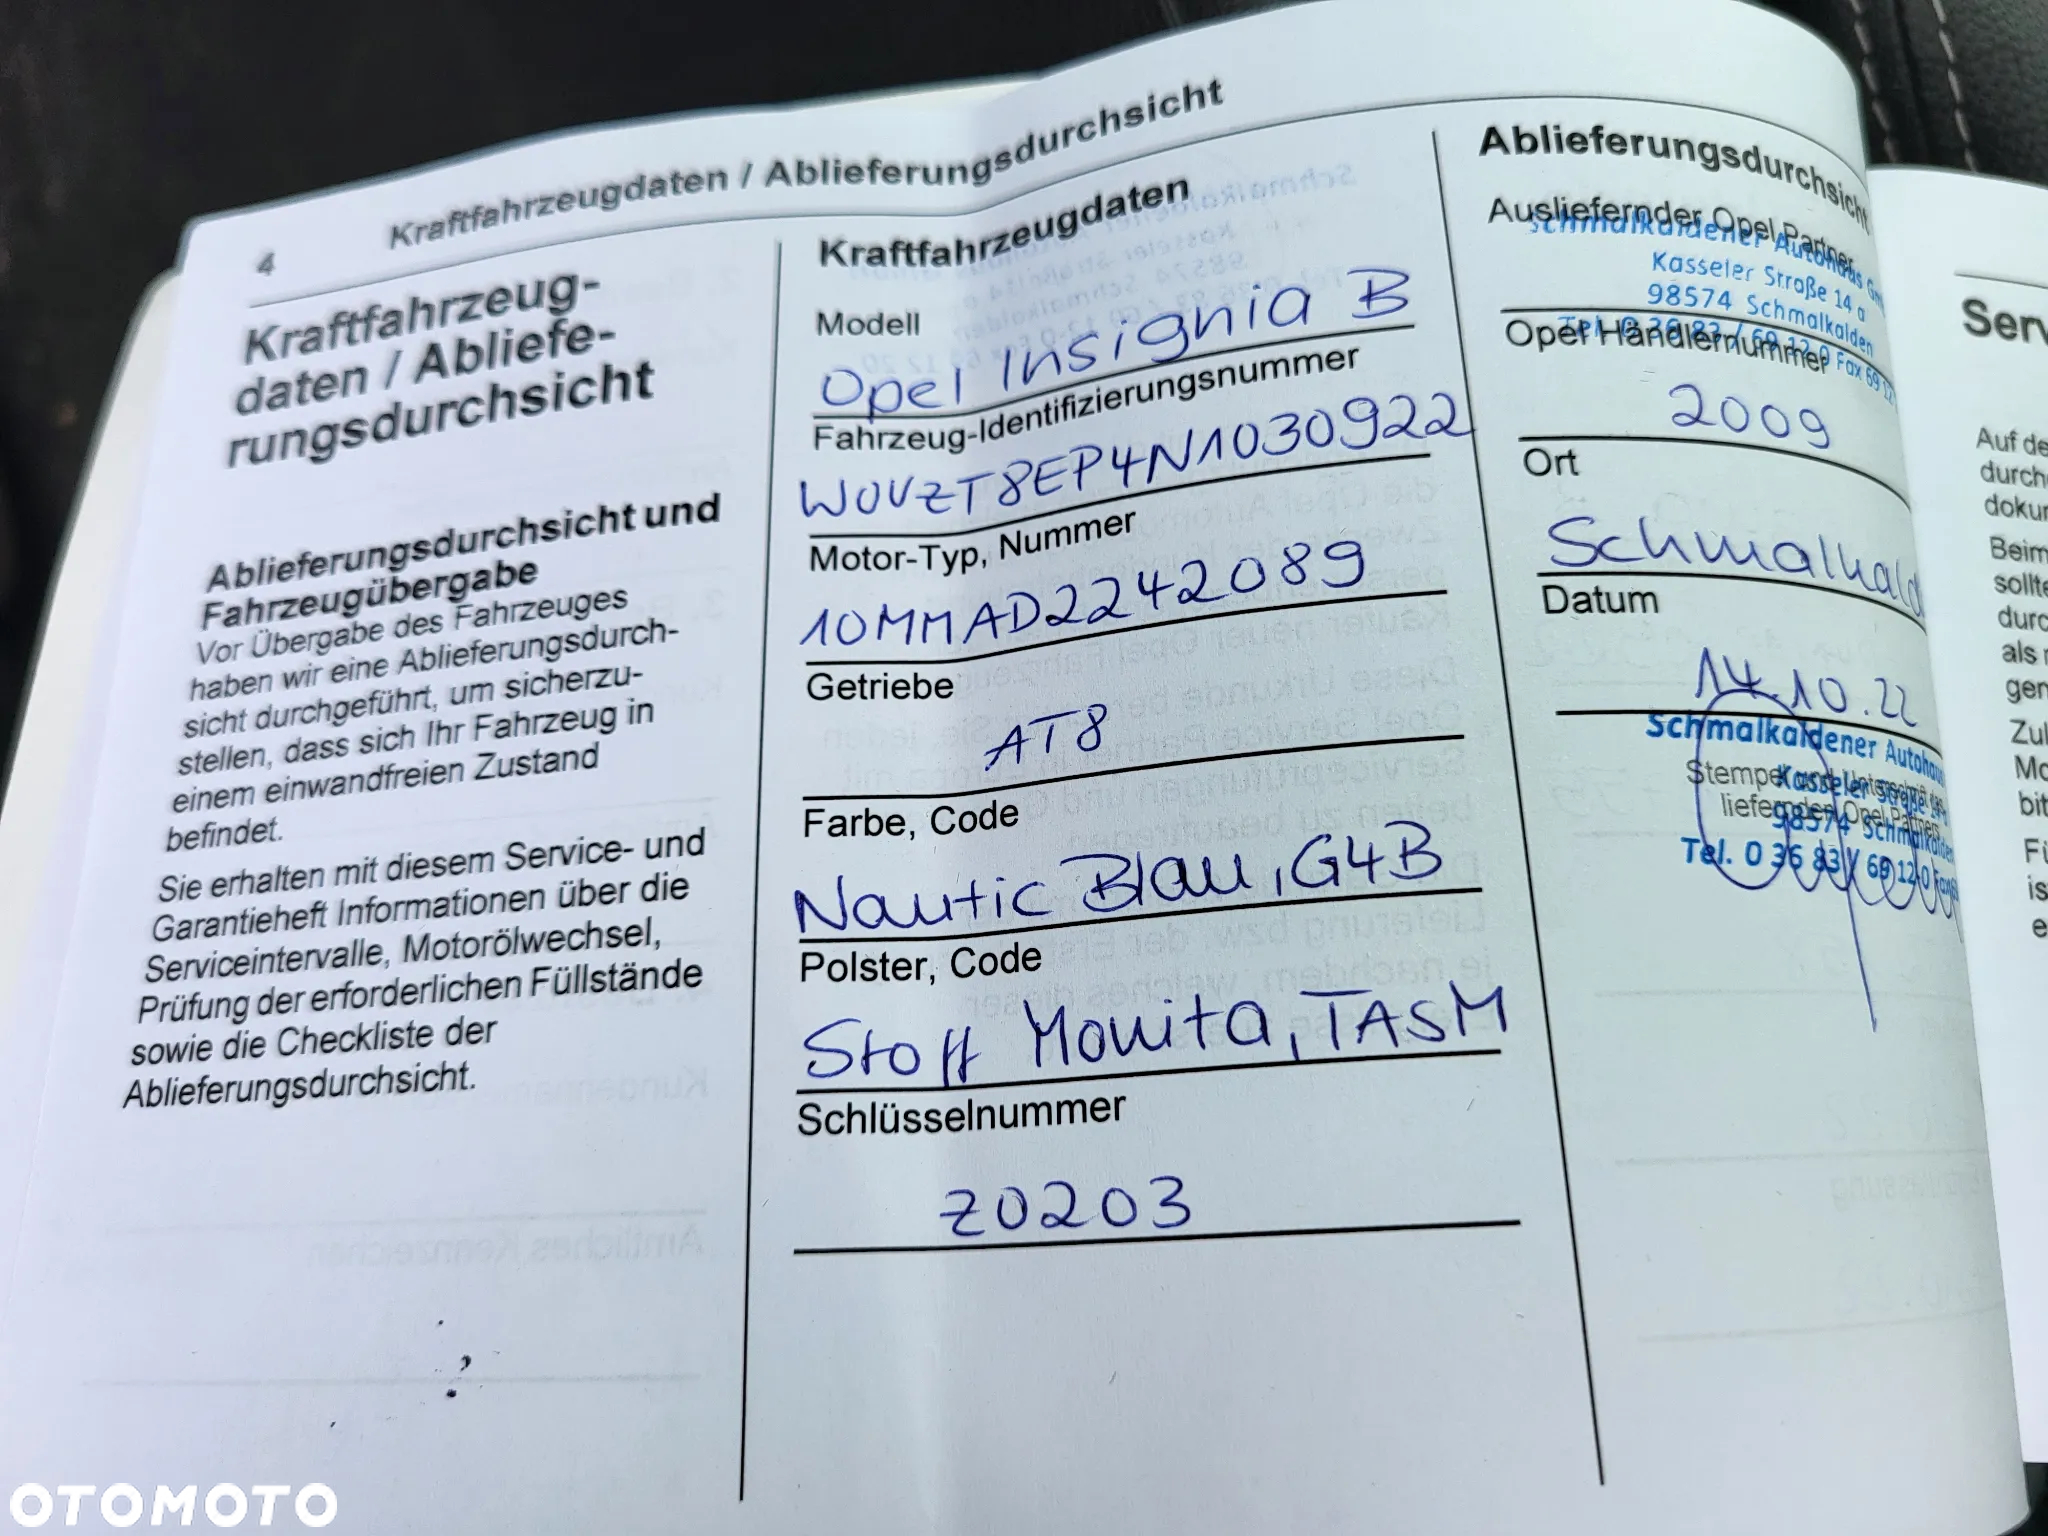 4
Kraftfahrzeugdaten / Ablieferungsdurchsicht
Kraftfahrzeug-
daten / Abliefe-
rungsdurchsicht
Ablieferungsdurchsicht und
Fahrzeugübergabe
Vor Übergabe des Fahrzeuges
haben wir eine Ablieferungsdurch-
sicht durchgeführt, um sicherzu-
stellen, dass sich Ihr Fahrzeug in
einem einwandfreien Zustand
befindet.
Sie erhalten mit diesem Service- und
Garantieheft Informationen über die
Serviceintervalle, Motorölwechsel,
Prüfung der erforderlichen Füllstände
sowie die Checkliste der
Ablieferungsdurchsicht.
Kraftfahrzeugdaten
Modell
Opel Insignia B
Fahrzeug-Identifizierungsnummer
W0VZT8EP4N1030922
Motor-Typ, Nummer
10MMAD2242089
Getriebe
AT8
Farbe, Code
Nautic Blau, G4B
Polster, Code
Stoff Monita, TASM
Schlüsselnummer
Z0203
Ablieferungsdurchsicht
Ausliefernder Opel Partner
Schmalkaldener Autohaus
Kasseler Straße 14 a
98574 Schmalkalden
Tel. 0 36 83 / 69 12-0 Fax 69 12
Opel Händlernummer
2009
Ort
Schmalkald
Datum
14.10.22
Schmalkaldener Autohau
Kasseler Straße
98574 Schmalkalden
Tel. 0 36 83 / 69 12-0
Stempel und Unterschrift des
liefernden Opel Partners
Serv
Auf de
durch
doku
Beim
sollte
durc
als
gen
Zul
Mo
bit
Fü
is
e
OTOMOTO